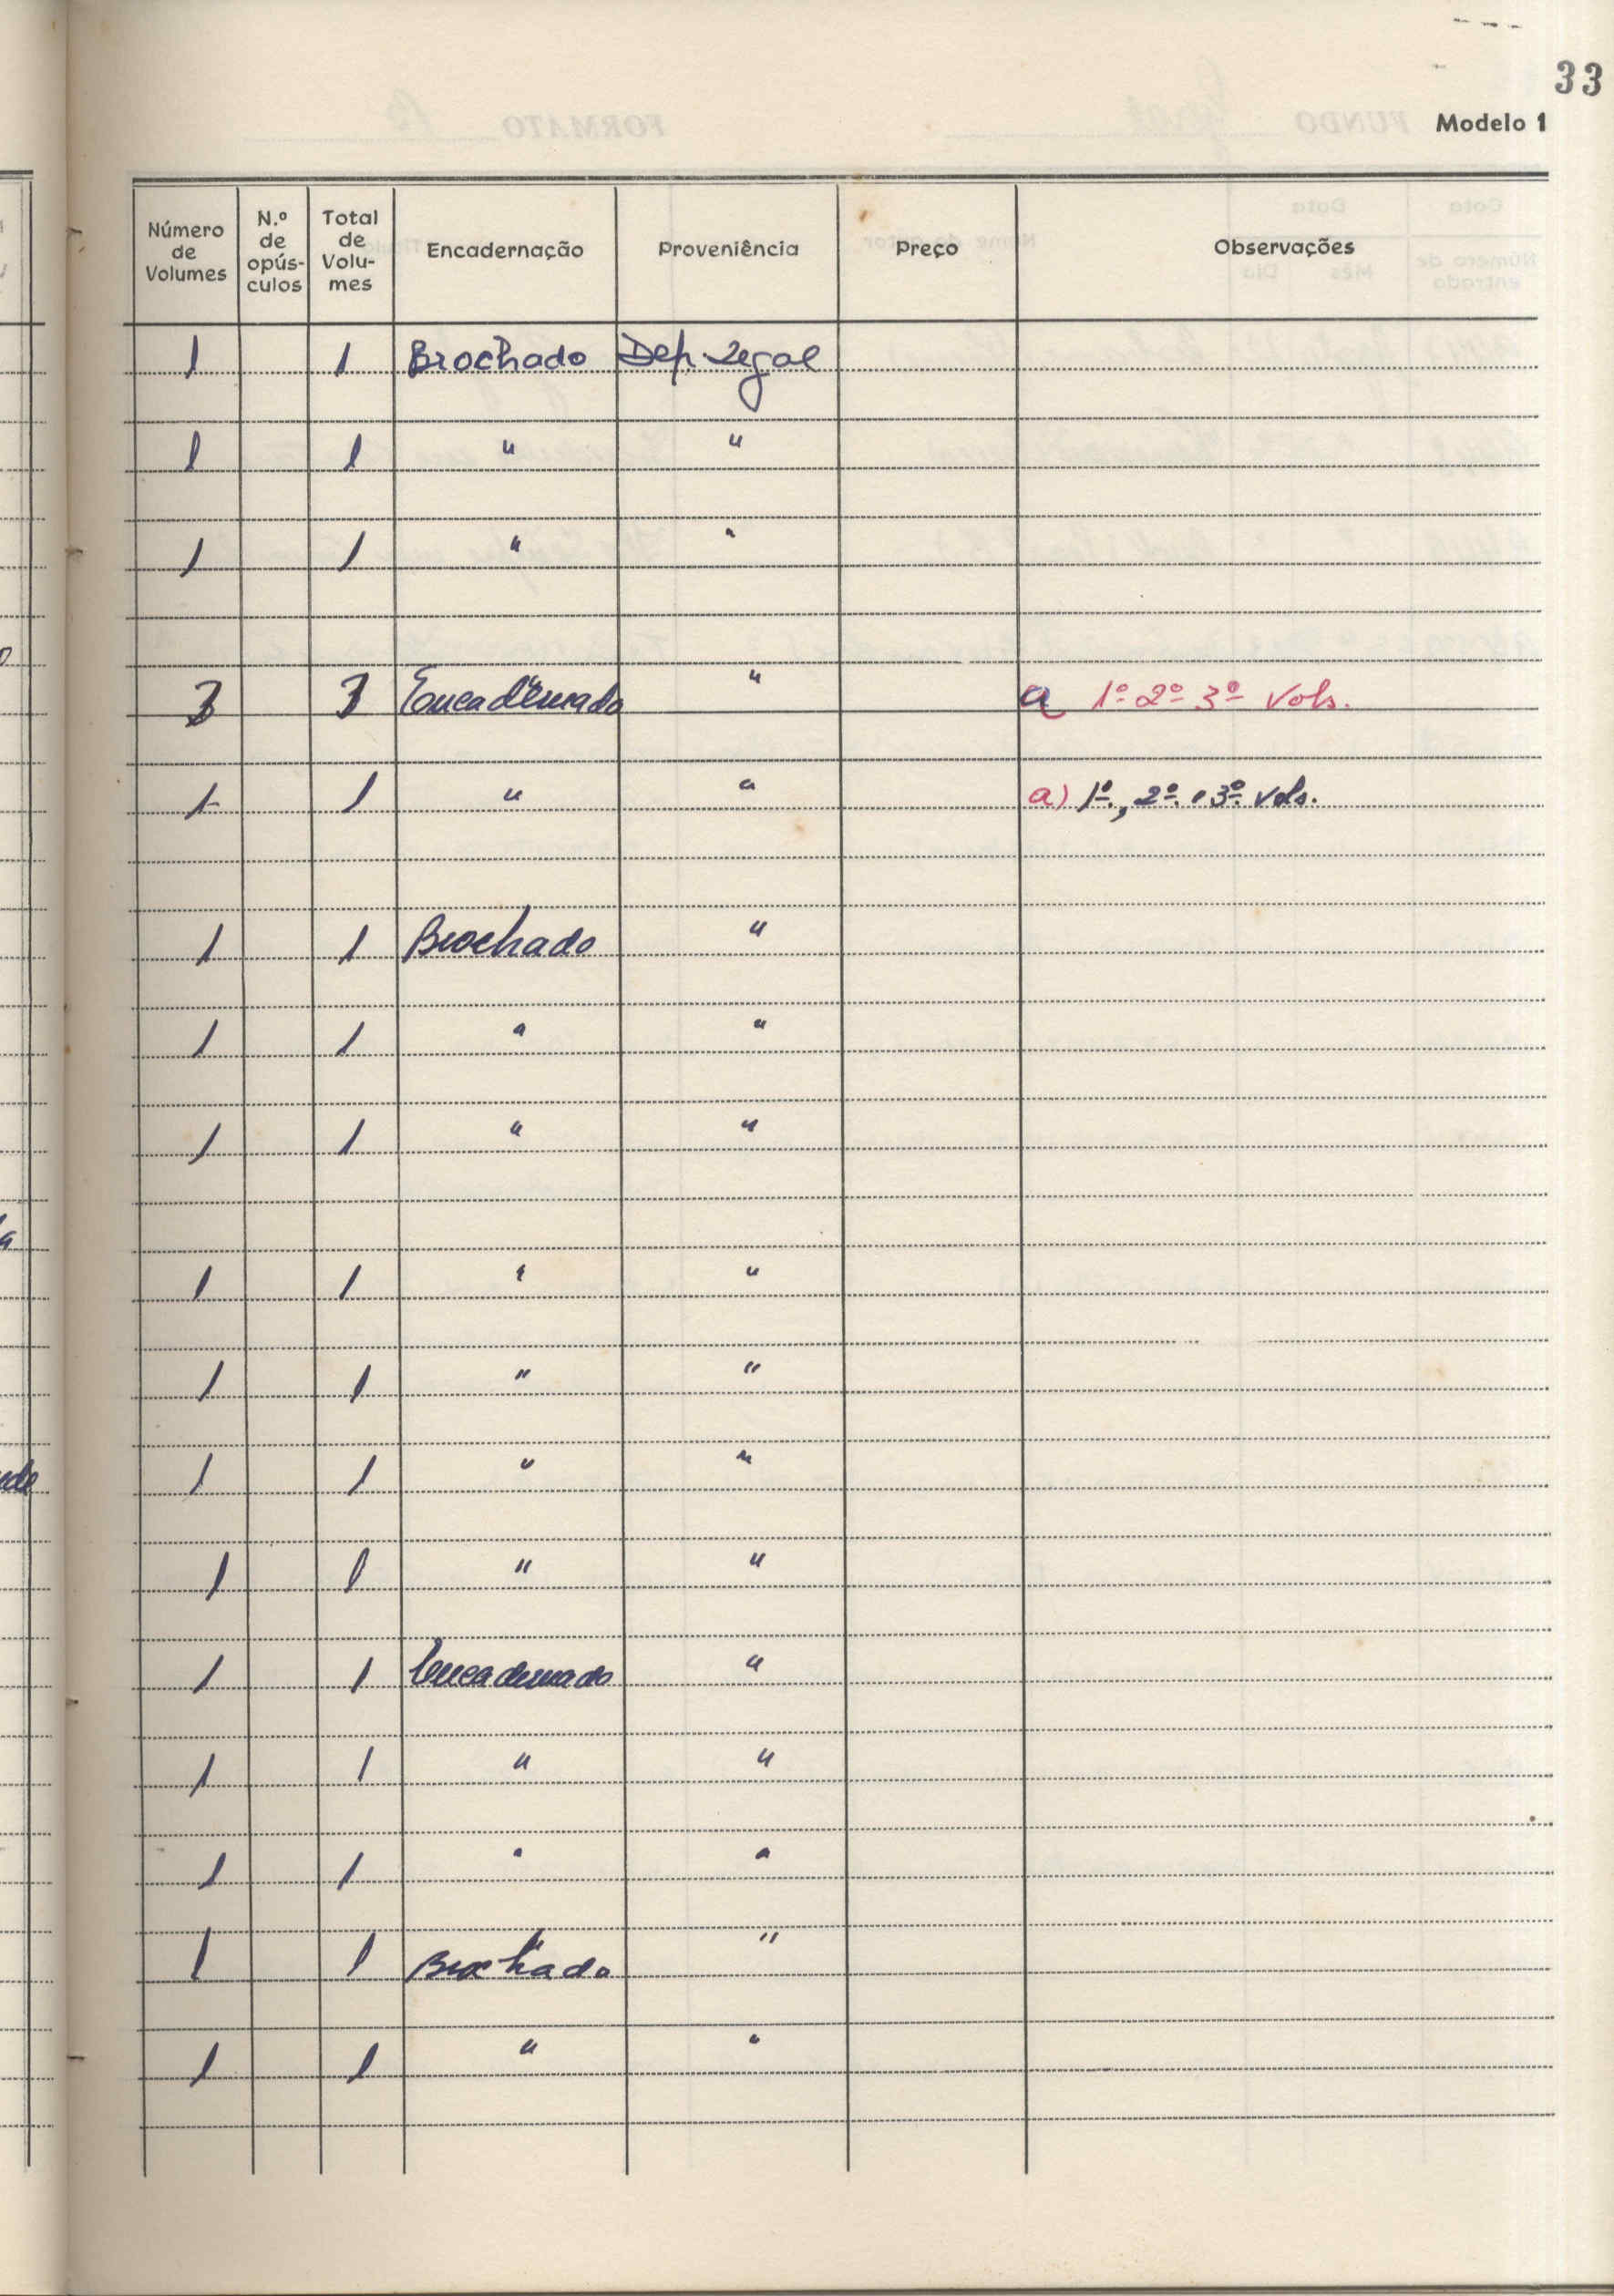 33
Modelo 1
Número de Volumes N.º de opús-culos Total de Volu-mes Encadernação Proveniência Preço Observações
1 1 Brochado Dep. Legal
1 1 " "
1 1 " "
3 3 Encadernado " a 1º 2º 3º Vols.
1 1 " " a) 1º, 2º e 3º vols.
1 1 Brochado "
1 1 " "
1 1 " "
1 1 " "
1 1 " "
1 1 " "
1 1 " "
1 1 Encadernado "
1 1 " "
1 1 " "
1 1 Brochado "
1 1 " "